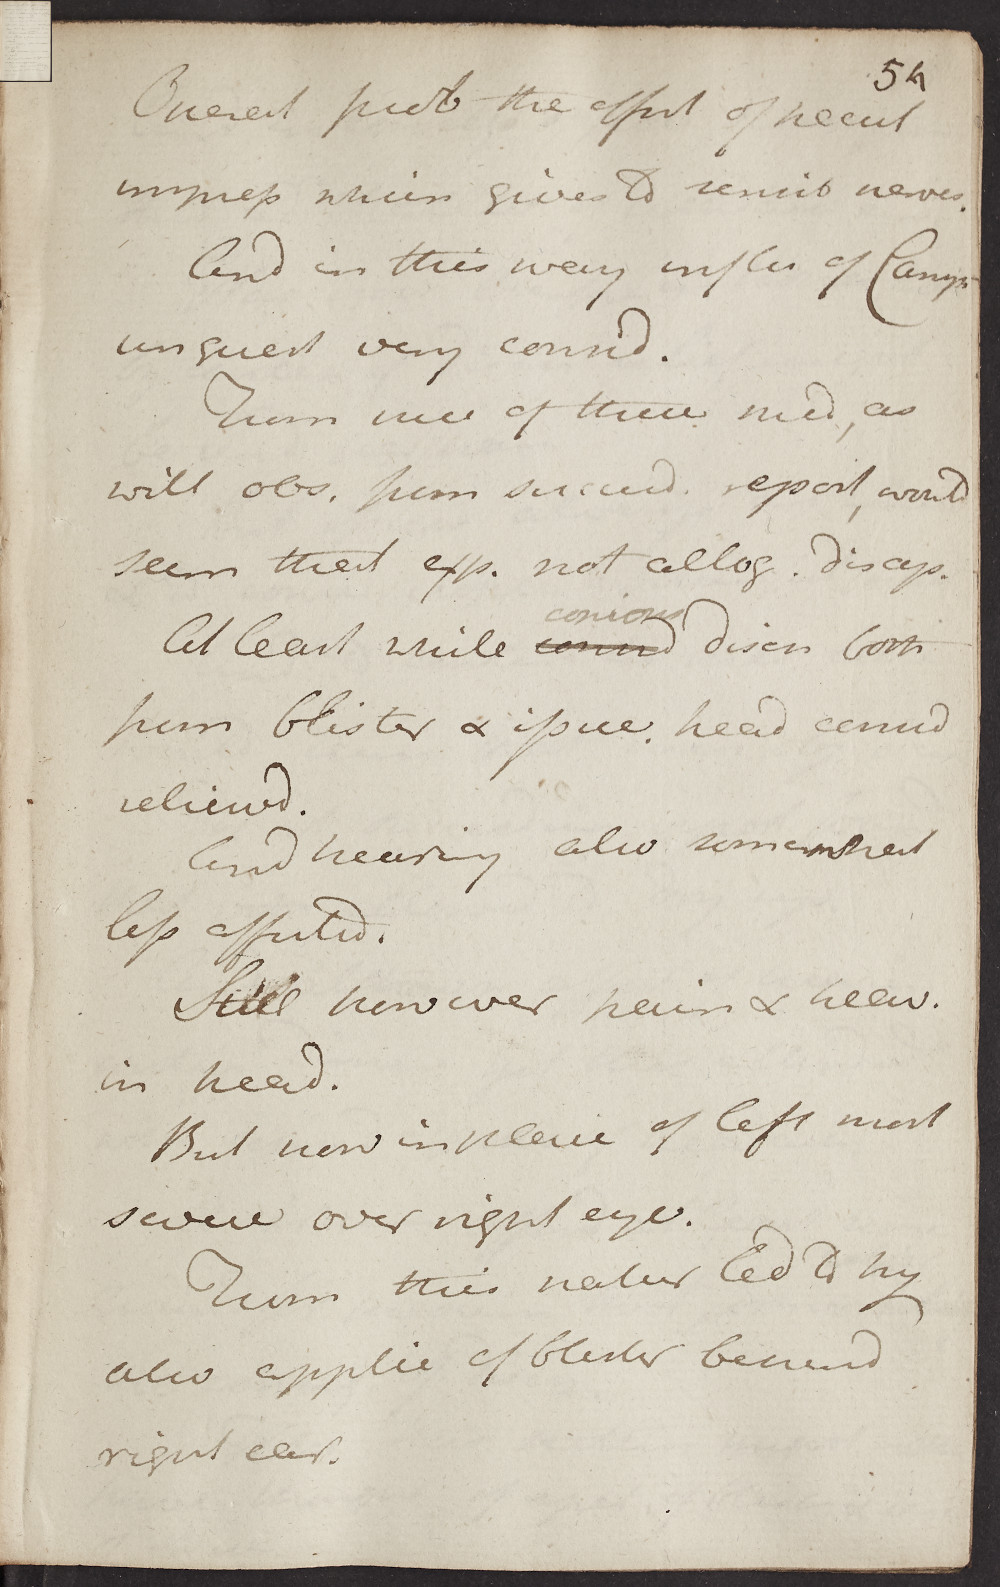 54
Overat prob the effect of heat
impress which gives to sensib nerves.
And in this way influ of Camph
unguent very consid.
From use of these med, as
will obs. from succeed. report, would
seem that exp. not altog. disap.
At least while copious disch both
consid
from blister & issue. head consid
reliev'd.
And hearing also somewhat
less affected.
Still however pain & heav.
in head.
But now in place of left most
severe over right eye.
From this natur led to try
also applic of blister behind
right ear.